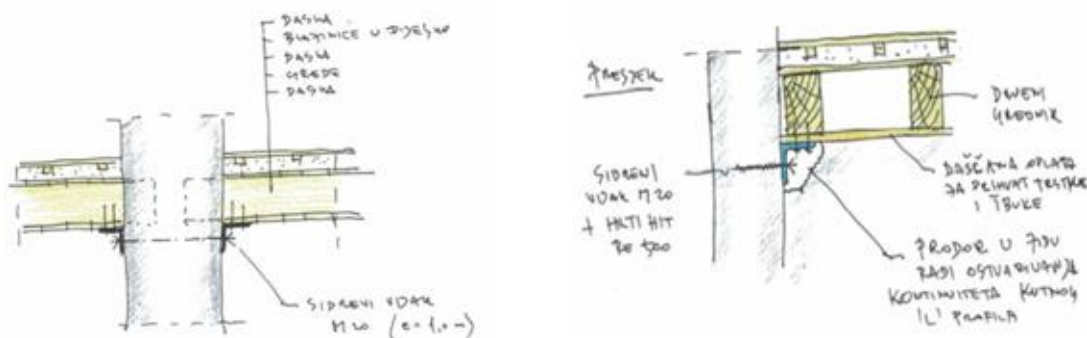 DASKA
BLAZINICE U PIJESKU
DASKA
GREDE
DASKA
SIDRENI VIJAK
M20 (e=1,0 m)
PRESJEK
SIDRENI
VIJAK M20
+ HILTI HIT
RE 500
DRVENI
GREDNIK
DAŠČANA OPLATA
ZA PRIHVAT TRSTIKE
I ŽBUKE
PRODOR U ZIDU
RADI OSTVARIVANJA
KONTINUITETA KUTNOG
'L' PROFILA